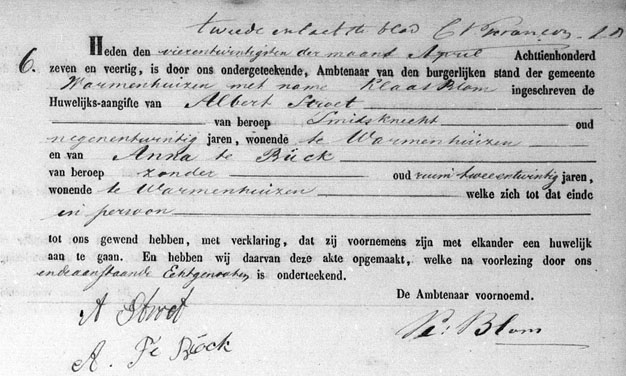 tweede en laatste blad
6. Heden den vierentwintigsten der maand April Achttienhonderd
zeven en veertig, is door ons ondergeteekende, Ambtenaar van den burgerlijken stand der gemeente
Warmenhuizen met name Klaas Blom ingeschreven de
Huwelijks-aangifte van Albert Stroet
van beroep Smidsknecht oud
negenentwintig jaren, wonende te Warmenhuizen
en van Anna te Bück
van beroep zonder oud ruim tweeentwintig jaren,
wonende te Warmenhuizen welke zich tot dat einde
in persoon
tot ons gewend hebben, met verklaring, dat zij voornemens zijn met elkander een huwelijk
aan te gaan. En hebben wij daarvan deze akte opgemaakt, welke na voorlezing door ons
en de aanstaande Echtgenooten is onderteekend.
De Ambtenaar voornoemd.
A Stroet
Kl: Blom
A. Te Böck